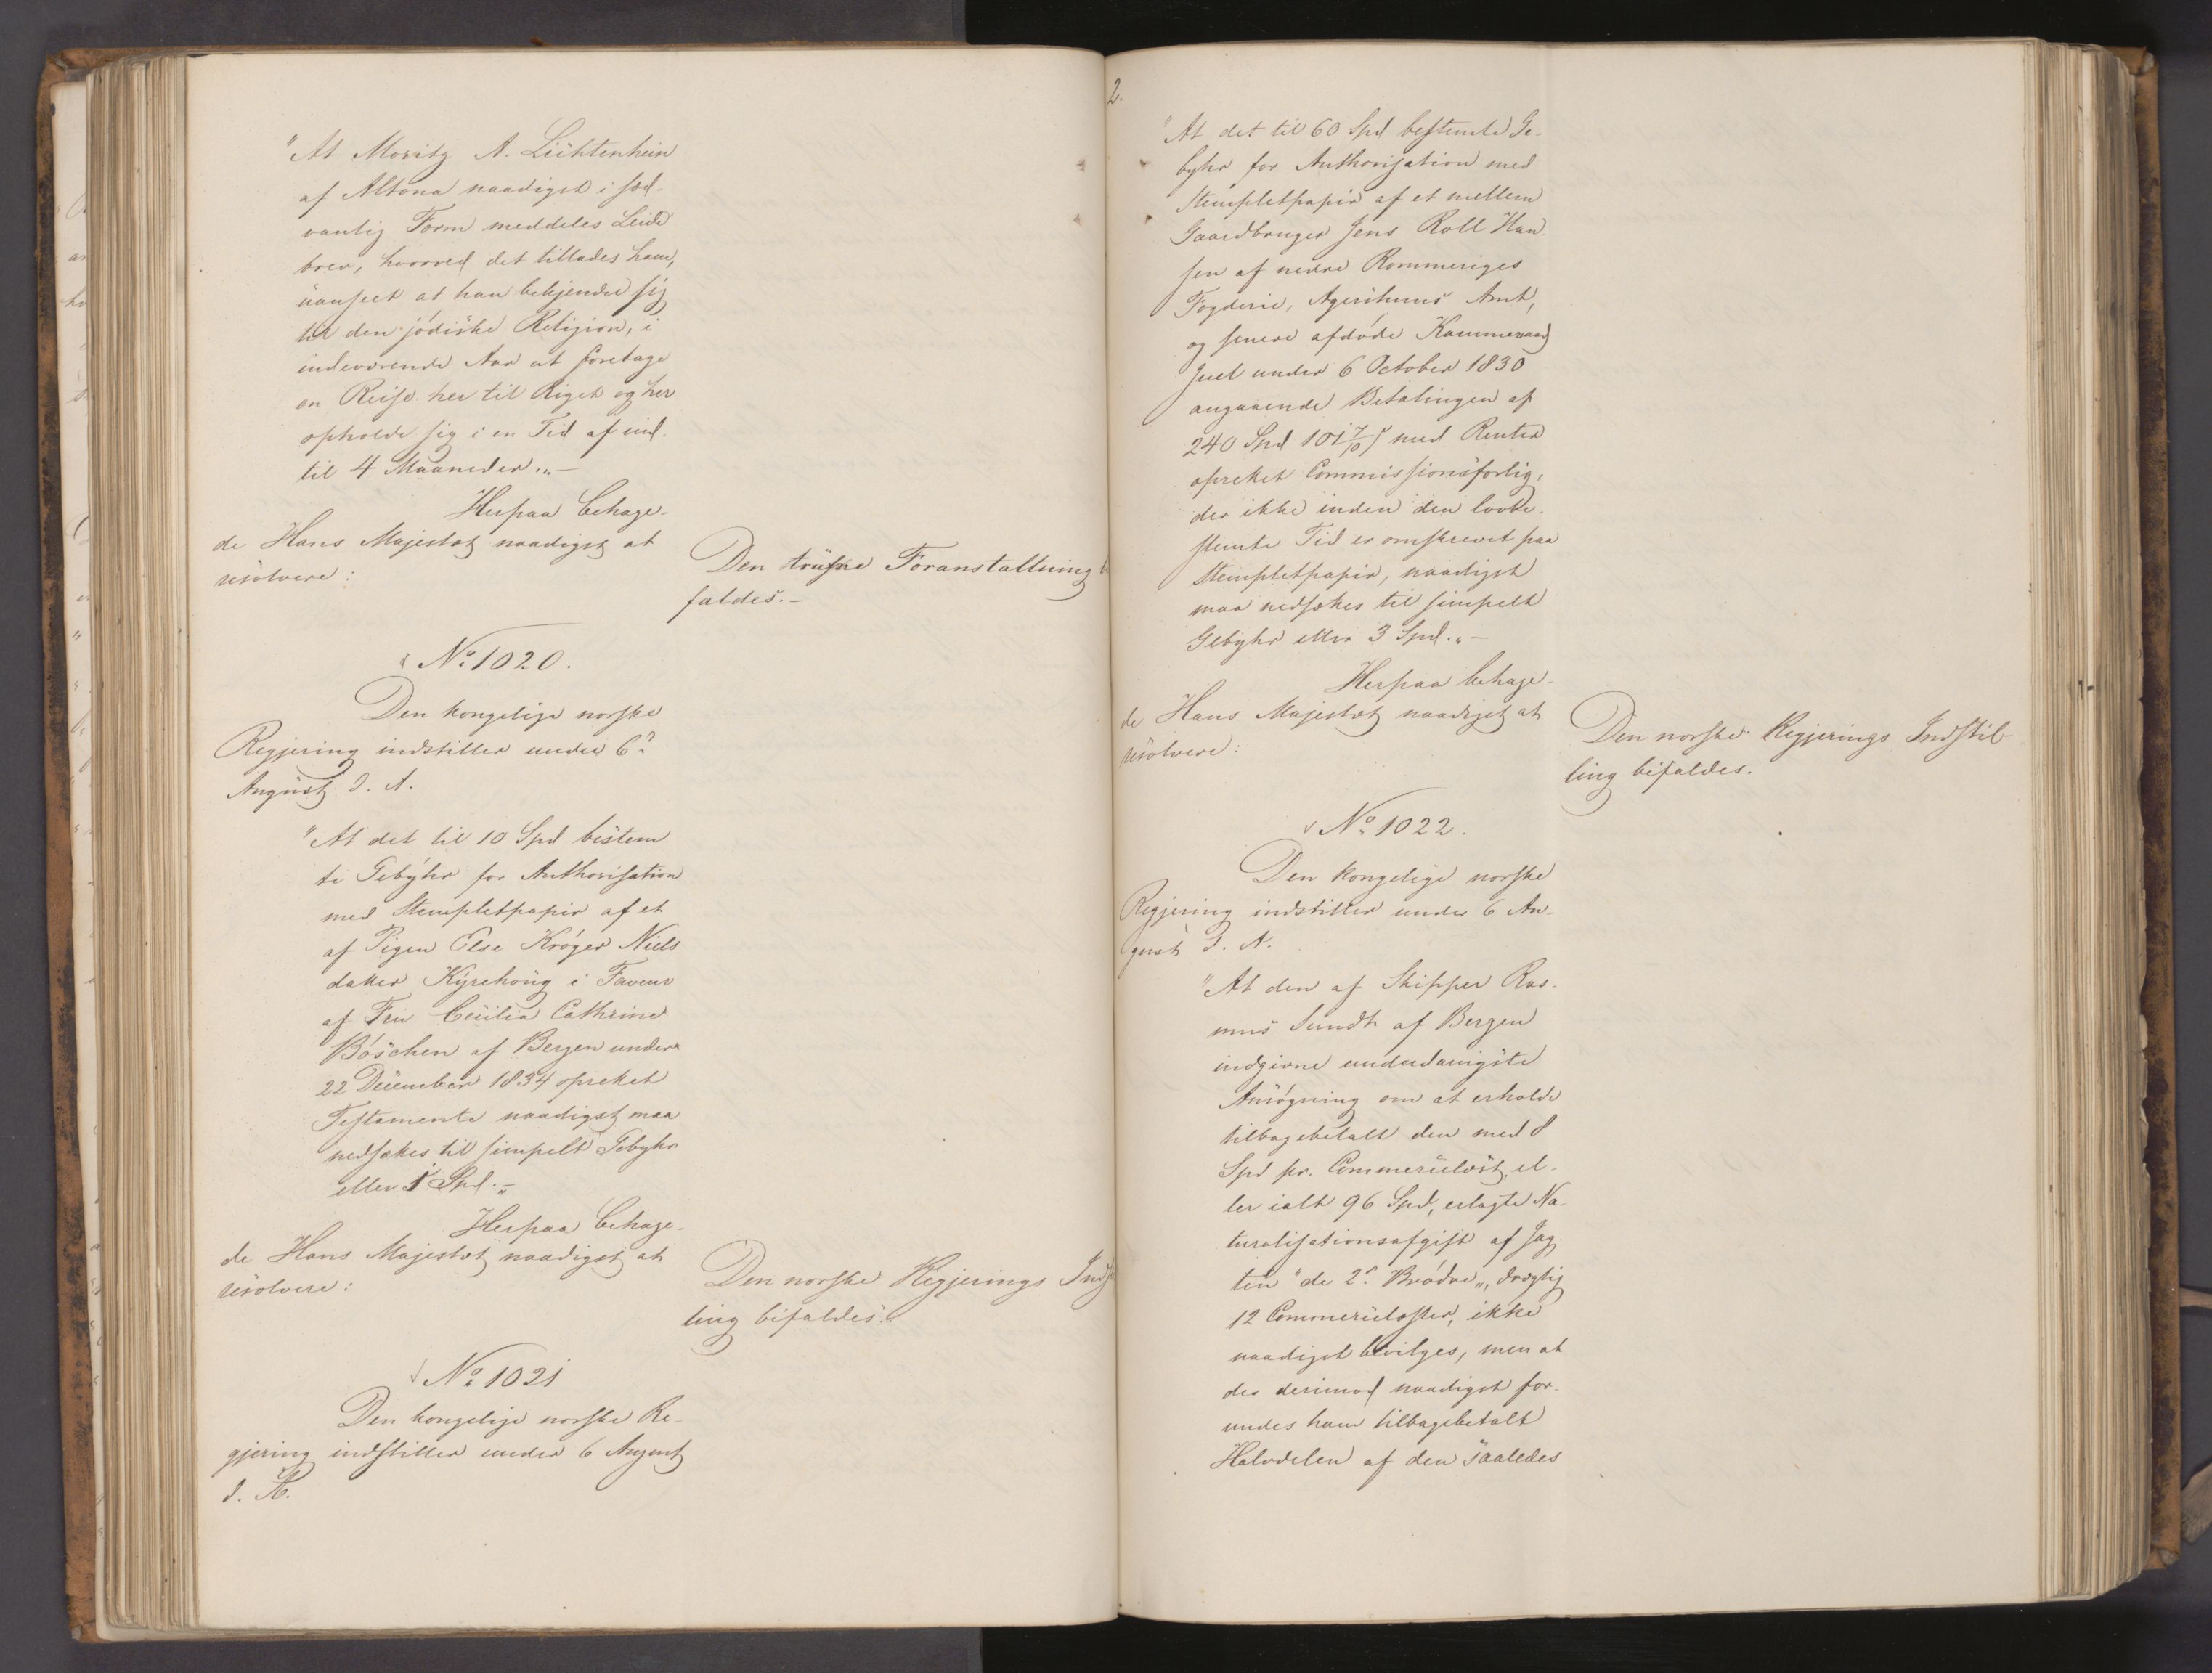 "At Moritz A. Lichtenhein
af Altona naadigst i sæd-
vanlig Form meddeles Leide
brev, hvorved det tillades ham,
uanseet at han bekjender sig
til den jødiske Religion, i
indeværende Aar at foretage
en Reise her til Riget og her
opholde sig i en Tid af ind-
til 4 Maaneder„.-
Herpaa behage-
de Hans Majestæt naadigst at
resolvere:
Den trufne Foranstaltning b
faldes.-
No 1020.
Den kongelige norske
Regjering indstiller under 6te
August d. A.
"At det til 10 Spd bestem-
te Gebyhr for Authorisation
med Stempletpapir af et
af Pigen Else Krøger Niels
datter Kyrehoug i Faveur
af Fru Cecilia Cathrine
Bøschen af Bergen under
22 December 1834 oprettet
Testamente naadigst maa
nedsættes til simpelt Gebyhr
eller 1 Spd.„-
Herpaa behage-
de Hans Majestæt naadigst at
resolvere:
Den norske Regjerings Inds
ling bifaldes.
No 1021
Den kongelige norske Re-
gjering indstiller under 6 August
d. A.
2.
"At det til 60 Spd bestemte Ge-
byhr for Authorisation med
Stempletpapir af et mellem
Gaardbruger Jens Roll Han-
sen af nedre Rommeriges
Fogderie, Agershuus Amt,
og senere afdøde Kammerraad
Juel under 6 October 1830
angaaende Betalingen af
240 Spd 101 7/10 s med Renter
oprettet Commissionsforlig,
der ikke inden den lovbe-
stemte Tid er omskrevet paa
Stempletpapir, naadigst
maa nedsættes til simpelt
Gebyhr eller 3 Spd.„-
Herpaa behage-
de Hans Majestæt naadigst at
resolvere:
Den norske Regjerings Indstil-
ling bifaldes.
No 1022.
Den kongelige norske
Regjering indstiller under 6 Au-
gust d. A.
"At den af Skipper Ras-
mus Sundt af Bergen
indgivne underdanigste
Ansøgning om at erholde
tilbagebetalt den med 8
Spd pr. Commercelæst, el-
ler ialt 96 Spd, erlagte Na-
turalisationsafgift af Jag-
ten "de 2de Brødre„, drægtig
12 Commercelæster, ikke
naadigst bevilges, men at
der derimod naadigst for-
undes ham tilbagebetalt
Halvdelen af den saaledes